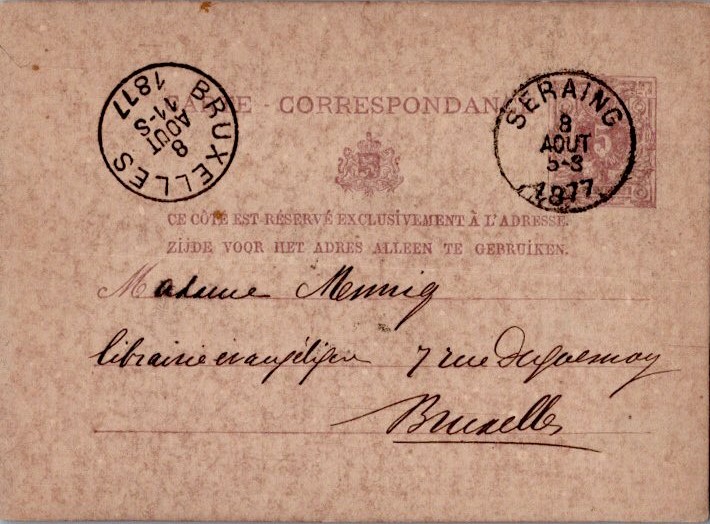 CARTE - CORRESPONDANCE
BRUXELLES
8
AOUT
11-S
1877
SERAING
8
AOUT
5-S
1877
5
CE CÔTÉ EST RÉSERVÉ EXCLUSIVEMENT À L'ADRESSE.
ZIJDE VOOR HET ADRES ALLEEN TE GEBRUIKEN.
Madame Mennig
librairie évangélique 7 rue Duquesnoy
Bruxelles